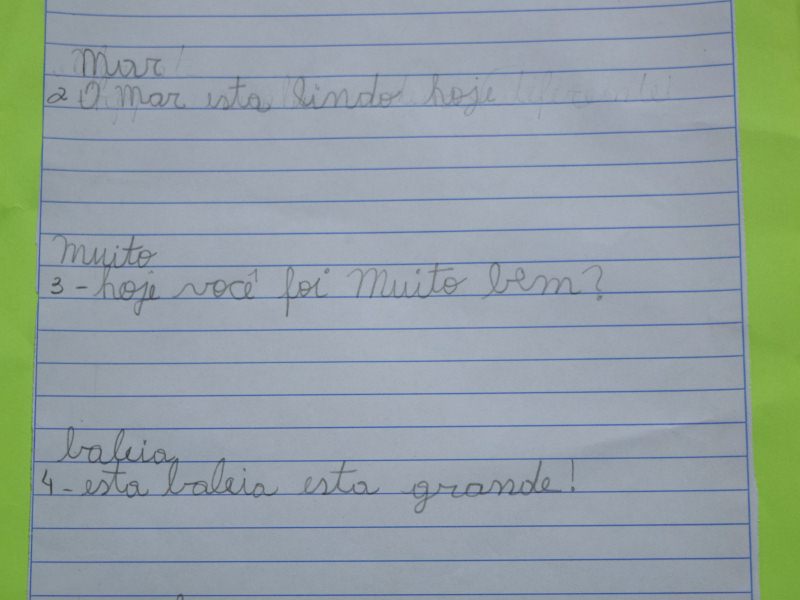 Mar
2 O Mar esta lindo hoje
Muito
3 - hoje você foi Muito bem?
baleia
4 - esta baleia esta grande!